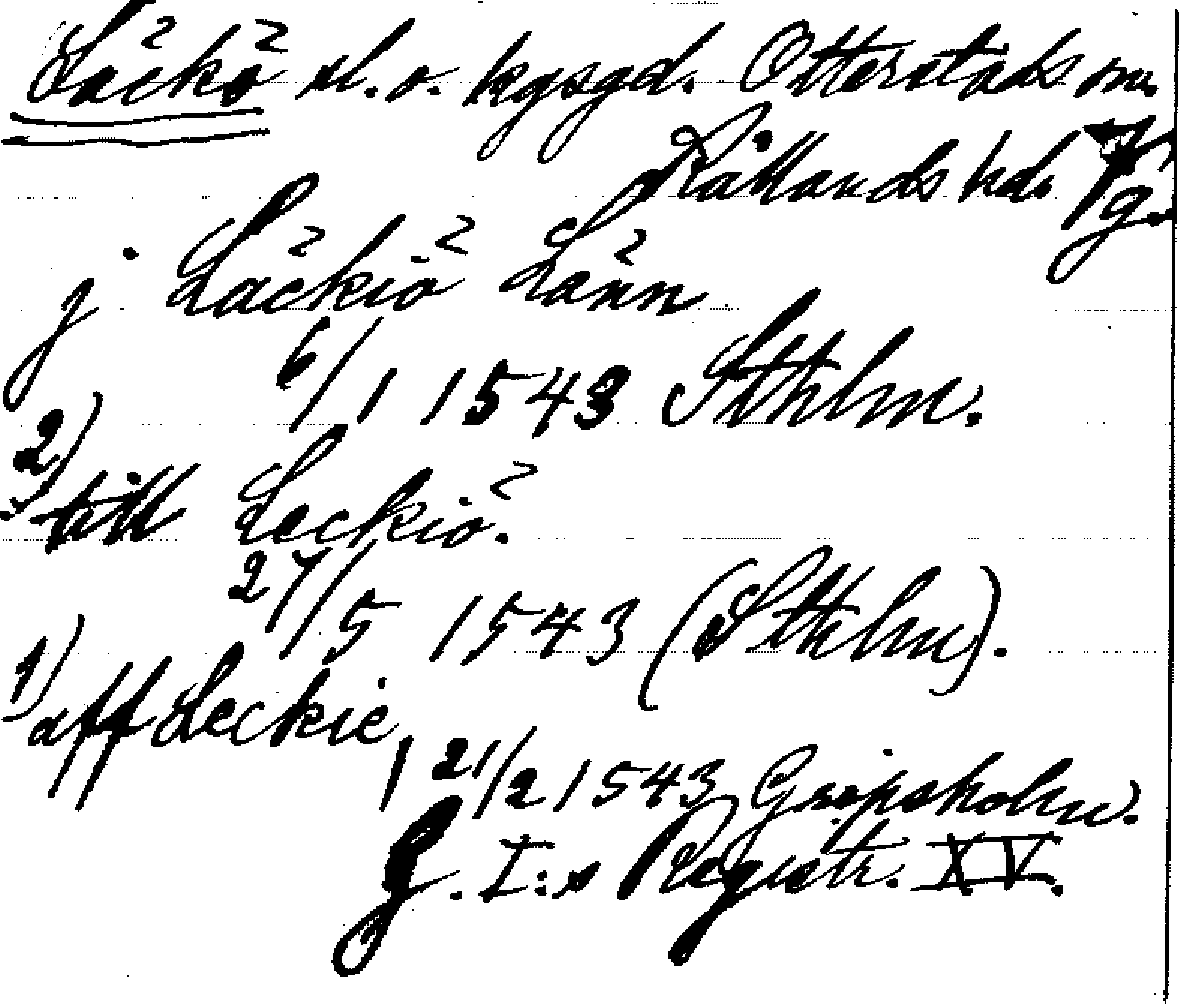 Läckö sl. o. kgsgd. Otterstads sn.
Kållands hd. Vg.
j Läckiö Länn
6/1 1543 Sthlm.
2)
till Leckiö.
27/5 1543 (Sthlm).
1)
aff Leckie,
21/2 1543 Gripsholm.
G. I:s Registr. XV.